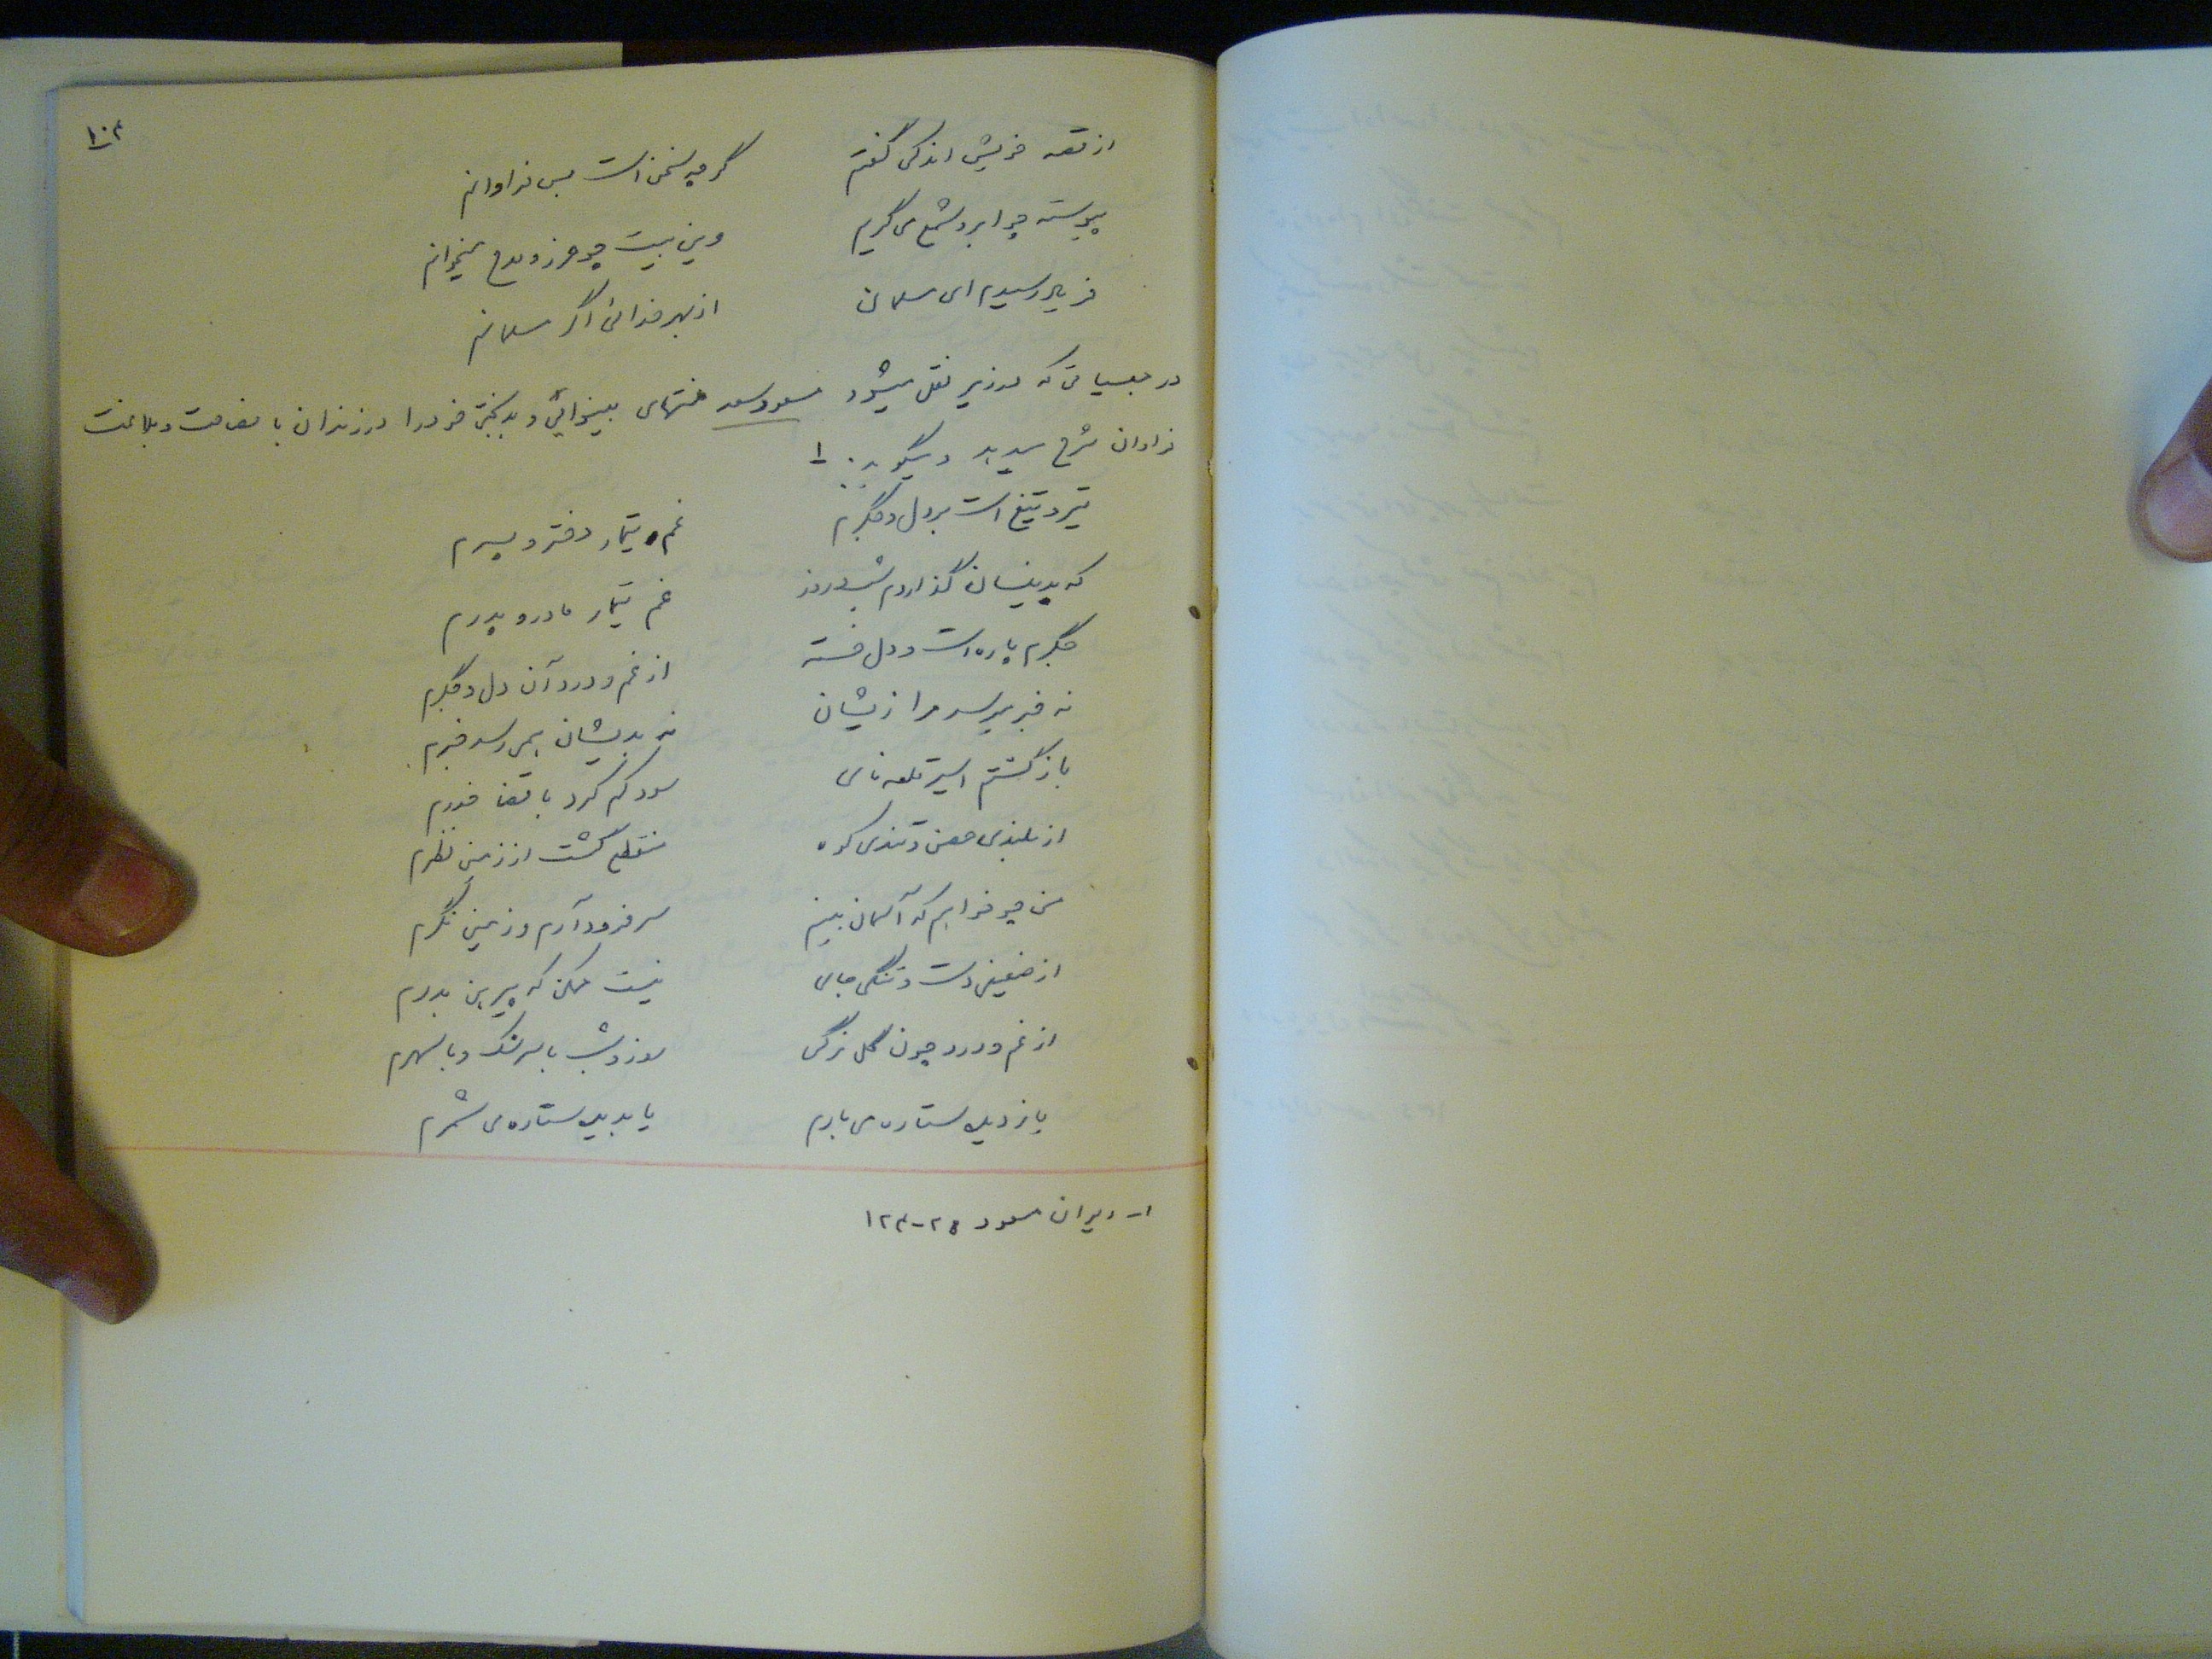 ۱۰۴
از قصه خویش اندکی گفتم گرچه سخن است بس فراوانم
پیوسته چو ابر و شمع می گریم وین بیت چو حرز و مدح میخوانم
فریاد رسیدم ای مسلمانان از بهر خدائی اگر مسلمانم
در حبسیاتی که در زیر نقل میشود مسعود سعد منتهای بینوائی و بدبختی خود را در زندان با فصاحت و بلاغت
فراوان شرح میدهد و میگوید: ۱
تیر و تیغ است بر دل و جگرم غم و تیمار دختر و پسرم
که بدینسان گذاردم شب و روز غم تیمار مادر و پدرم
جگرم پاره است و دل خسته از غم و درد آن دل و جگرم
نه خبر میرسد مرا زیشان نه بدیشان همی رسد خبرم
باز گشتم اسیر قلعه نای سود کم کرد با قضا حذرم
از بلندی حصن و تندی کوه منقطع گشت از زمین نظرم
من چو خواهم که آسمان بینم سر فرود آرم و زمین نگرم
از ضعیفی دست و تنگی جای نیست ممکن که پیرهن بدرم
از غم و درد چون گل نرگس روز و شب با سرشک و با سهرم
یا ز دیده ستاره می بارم یا بدیده ستاره می شمرم
۱- دیوان مسعود ۲۸-۱۲۴